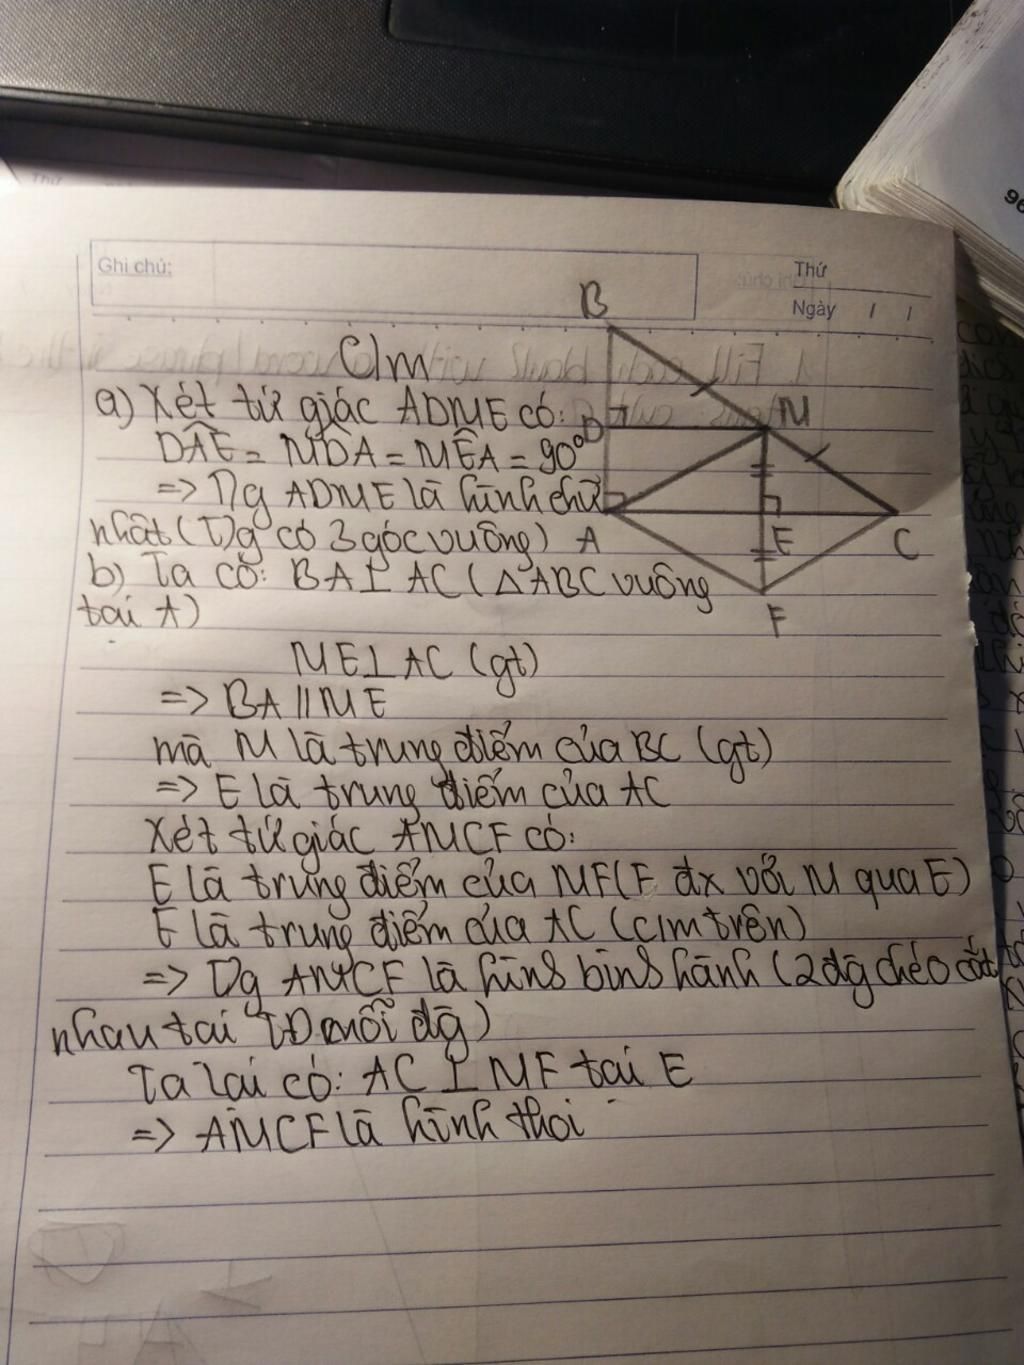 96
Ghi chú:
Thứ
Ngày / /
B
C/m
a) Xét tứ giác ADME có:
D
M
DÂE = MD̂A = MÊA = 90°
=> Tlg ADME là hình chữ
nhật (Tlg có 3 góc vuông)
A
E
C
b) Ta có: BA⊥AC (△ABC vuông
tại A)
F
ME⊥AC (gt)
=> BA//ME
mà M là trung điểm của BC (gt)
=> E là trung điểm của AC
Xét tứ giác AMCF có:
E là trung điểm của MF (F đx với M qua E)
E là trung điểm của AC (c/m trên)
=> Tlg AMCF là hình bình hành (2 đg chéo cắt
nhau tại TĐ mỗi đg)
Ta lại có: AC ⊥ MF tại E
=> AMCF là hình thoi